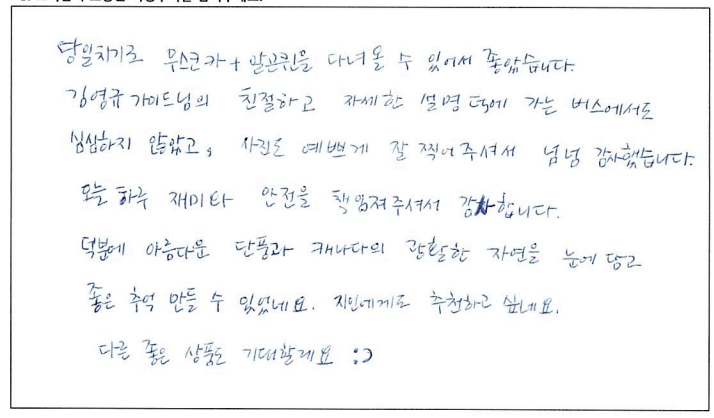 당일치기로 무스코카+알곤퀸을 다녀올 수 있어서 좋았습니다.
김영규 가이드님의 친절하고 자세한 설명 덕에 가는 버스에서도
심심하지 않았고, 사진도 예쁘게 잘 찍어주셔서 넘넘 감사했습니다.
오늘 하루 재미와 안전을 책임져주셔서 감사합니다.
덕분에 아름다운 단풍과 캐나다의 광활한 자연을 눈에 담고
좋은 추억 만들 수 있었네요. 지인에게도 추천하고 싶네요.
다른 좋은 상품도 기대할게요 :)